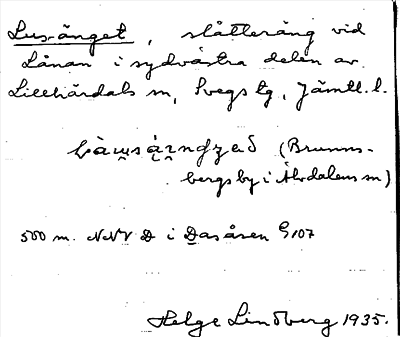 Lus-änget, slåtteräng vid
Lånan i sydvästra delen av
Lillhärdals sn, Svegs tg, Jämtl. l.
(Brunns-
bergsby i Älvdalens sn)
500 m. NNV D i Dasåsen G107
Helge Lindberg 1935.